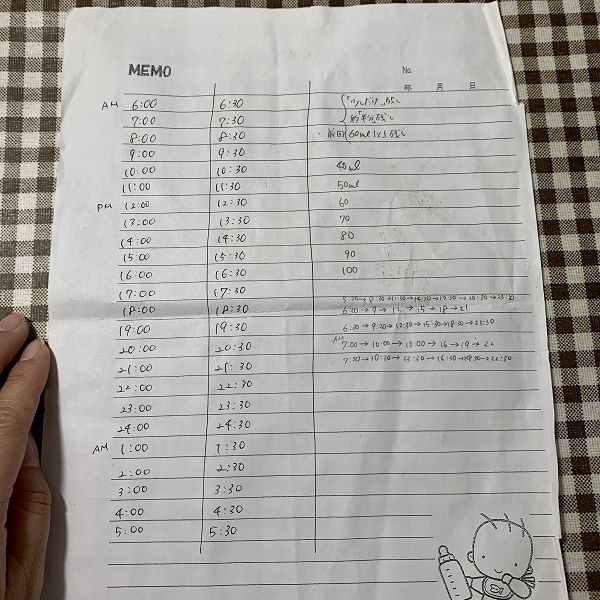 MEMO
No.
年 月 日
AM 6:00 6:30 「少しだけ」残し
7:00 7:30 約「半分残し
8:00 8:30 ・前回 60ml以上残し
9:00 9:30
10:00 10:30 40ml
11:00 11:30 50ml
PM 12:00 12:30 60
13:00 13:30 70
14:00 14:30 80
15:00 15:30 90
16:00 16:30 100
17:00 17:30
18:00 18:30 6:00→9→12→15→18→21
19:00 19:30 6:30→9:30→12:30→15:30→18:30→21:30
20:00 20:30 AM 7:00→10:00→13:00→16→19→22
21:00 21:30 7:30→10:30→13:30→16:30→19:30→22:30
22:00 22:30
23:00 23:30
24:00 24:30
AM 1:00 1:30
2:00 2:30
3:00 3:30
4:00 4:30
5:00 5:30